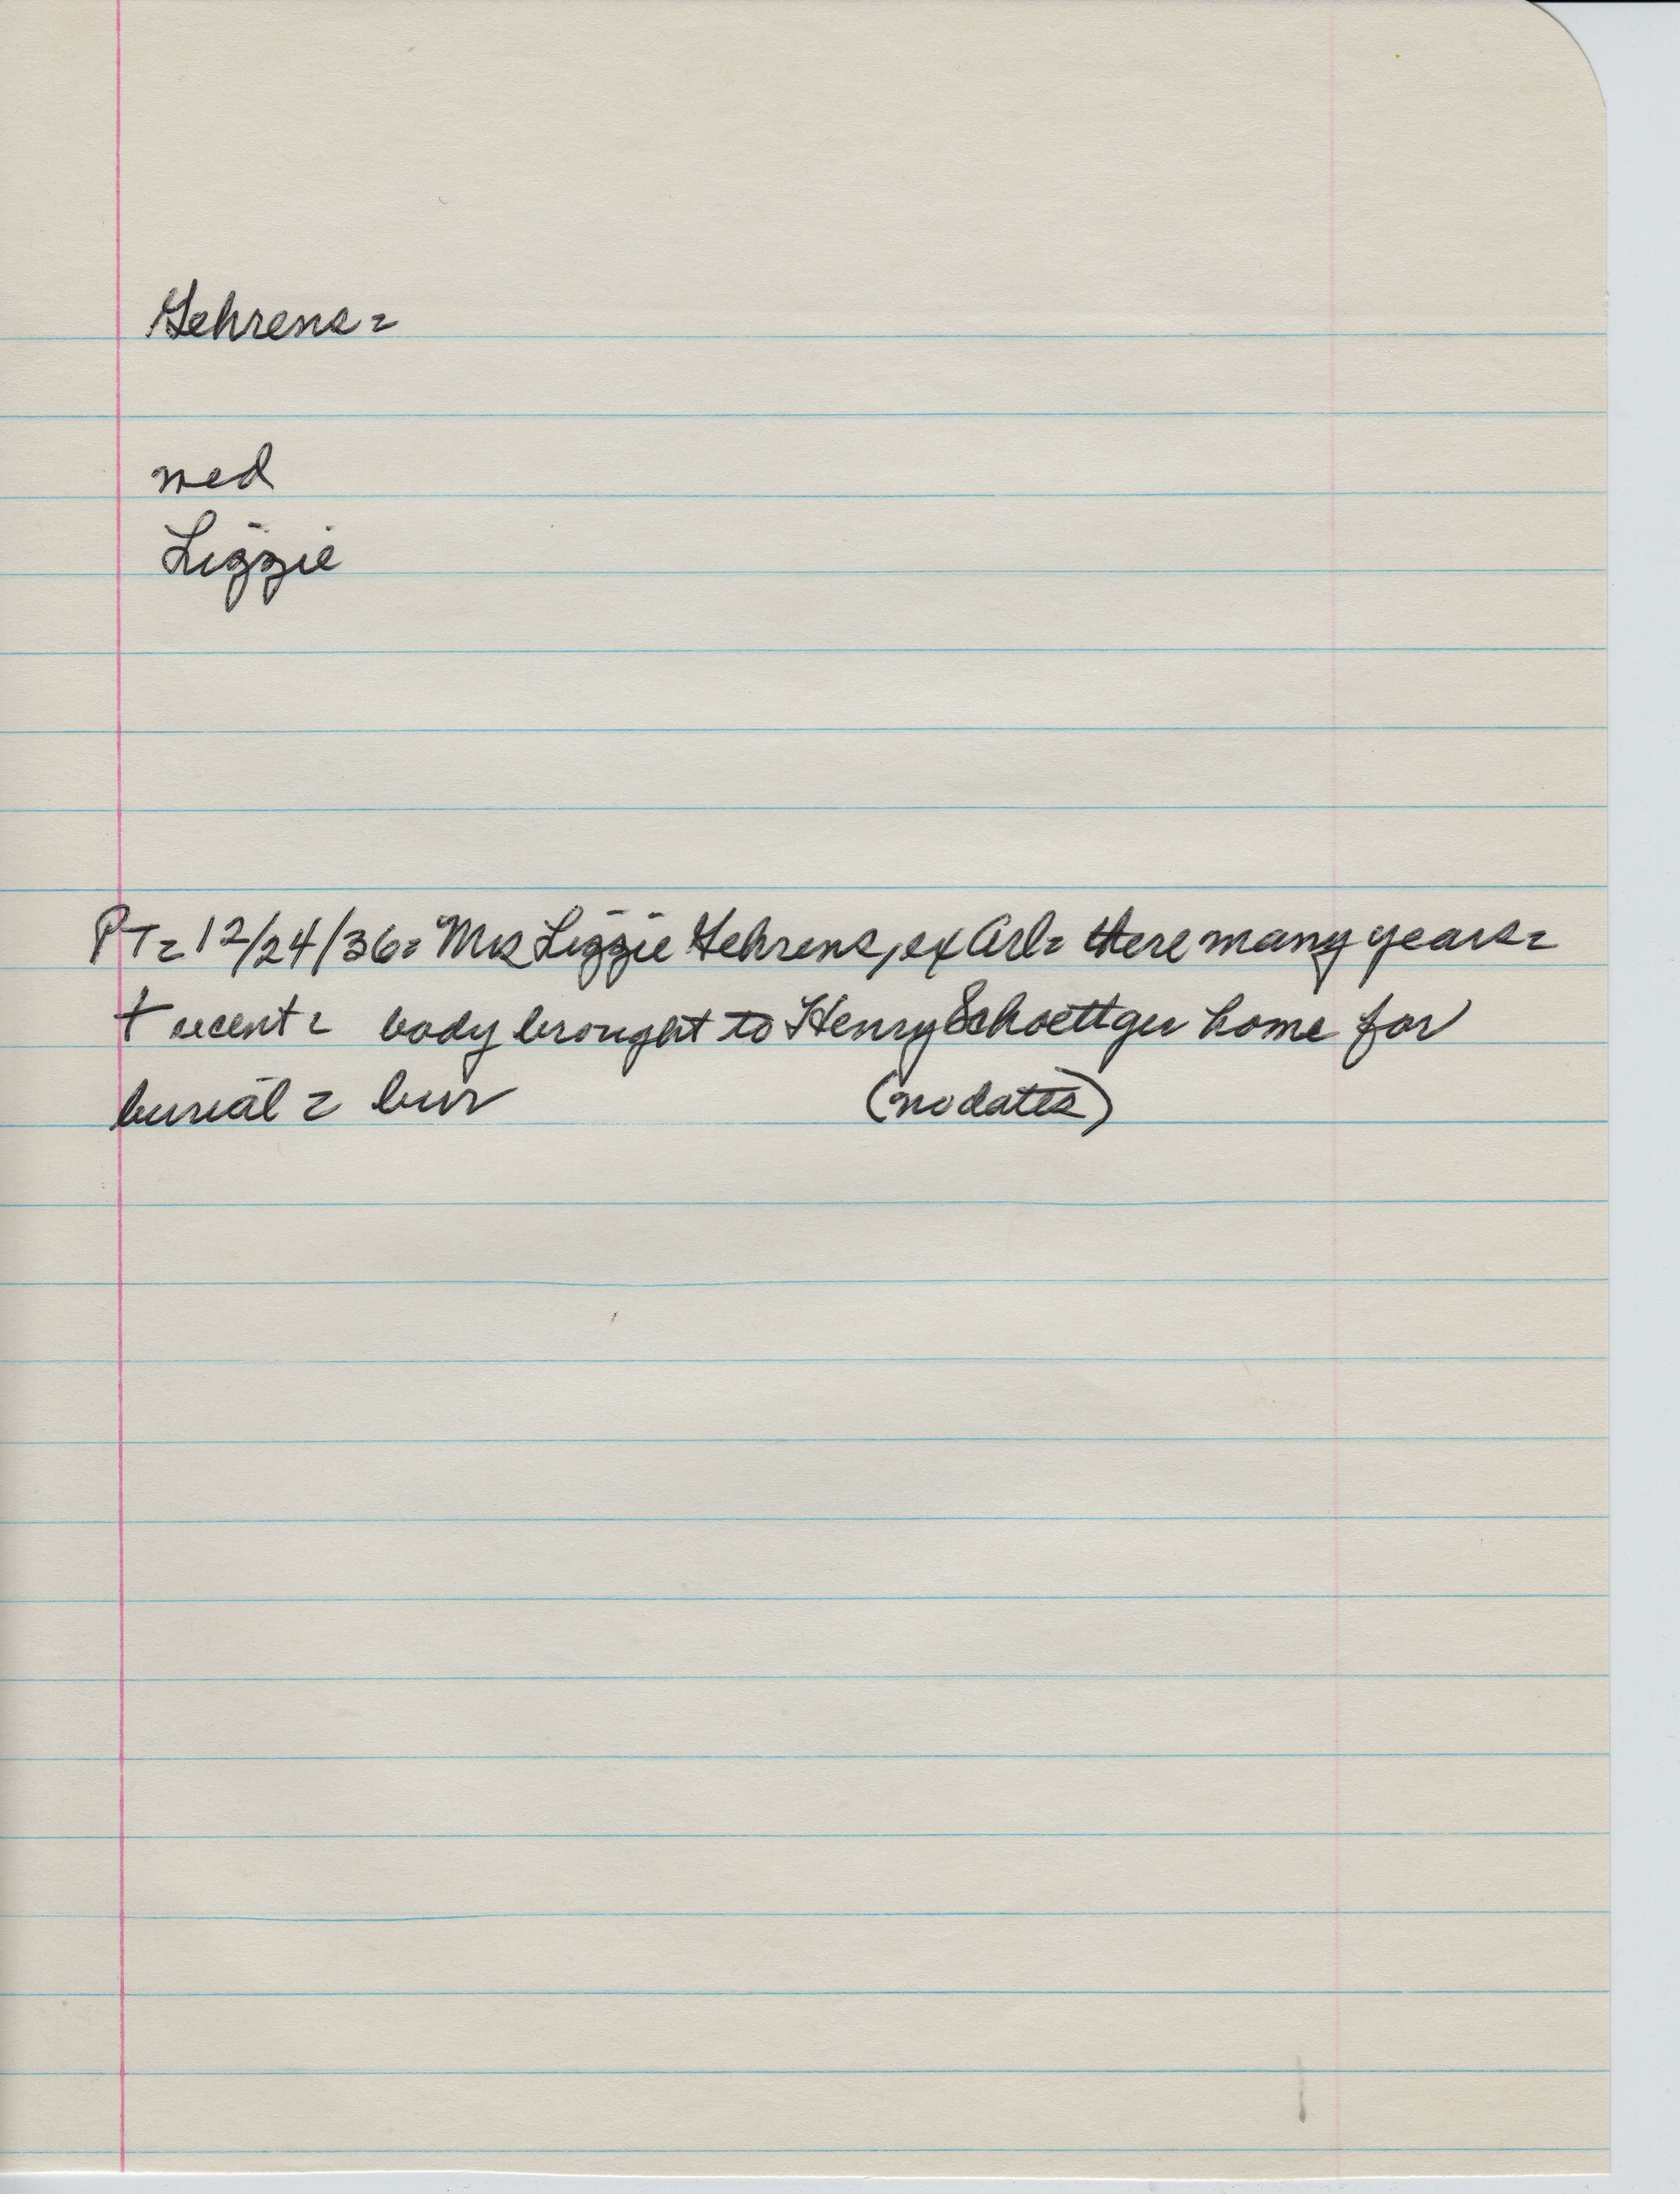 Gehrens =
med
Lizzie
PT = 12/24/36 = Mrs Lizzie Gehrens, ex Arl = there many years =
+ recent = body brought to Henry Schoettger home for
burial = bur (no dates)